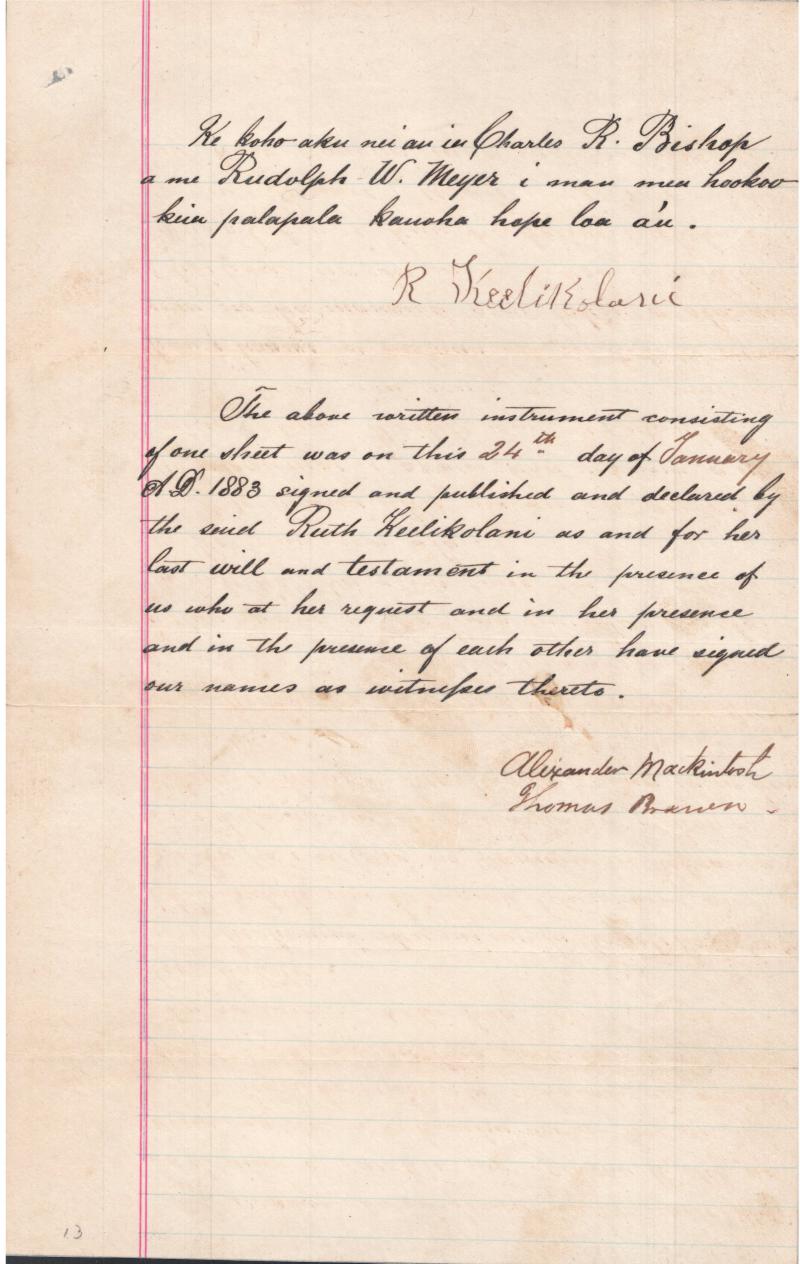 Ke koho aku nei au ia Charles R. Bishop
a me Rudolph W. Meyer i mau mea hookoo
kuu palapala kauoha hope loa a'u.
R Keelikolani
The above written instrument consisting
of one sheet was on this 24th day of January
A.D. 1883 signed and published and declared by
the said Ruth Keelikolani as and for her
last will and testament in the presence of
us who at her request and in her presence
and in the presence of each other have signed
our names as witnesses thereto.
Alexander Mackintosh
Thomas Brown
13